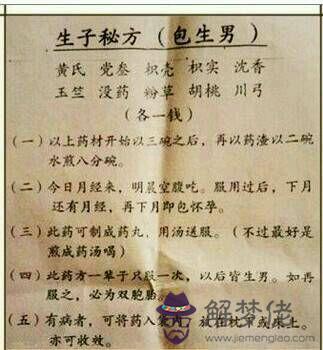 生子秘方（包生男）
黄氏 党叁 枳壳 枳实 沈香
玉竺 没药 粉草 胡桃 川弓
（各一钱）
（一）以上药材开始以三碗之后，再以药渣以二碗
水煎八分碗。
（二）今日月经来，明晨空腹吃。服用过后，下月
还有月经，再下月即包怀孕。
（三）此药可制成药丸，用汤送服。（不过最好是
煎成药汤喝）
（四）此药方一辈子只服一次，以后皆生男。如再
服之，必为双胞胎。
（五）有病者，可将药入 放在枕 或床上。
亦可收效。
解梦佬
www.jiemenglao.com